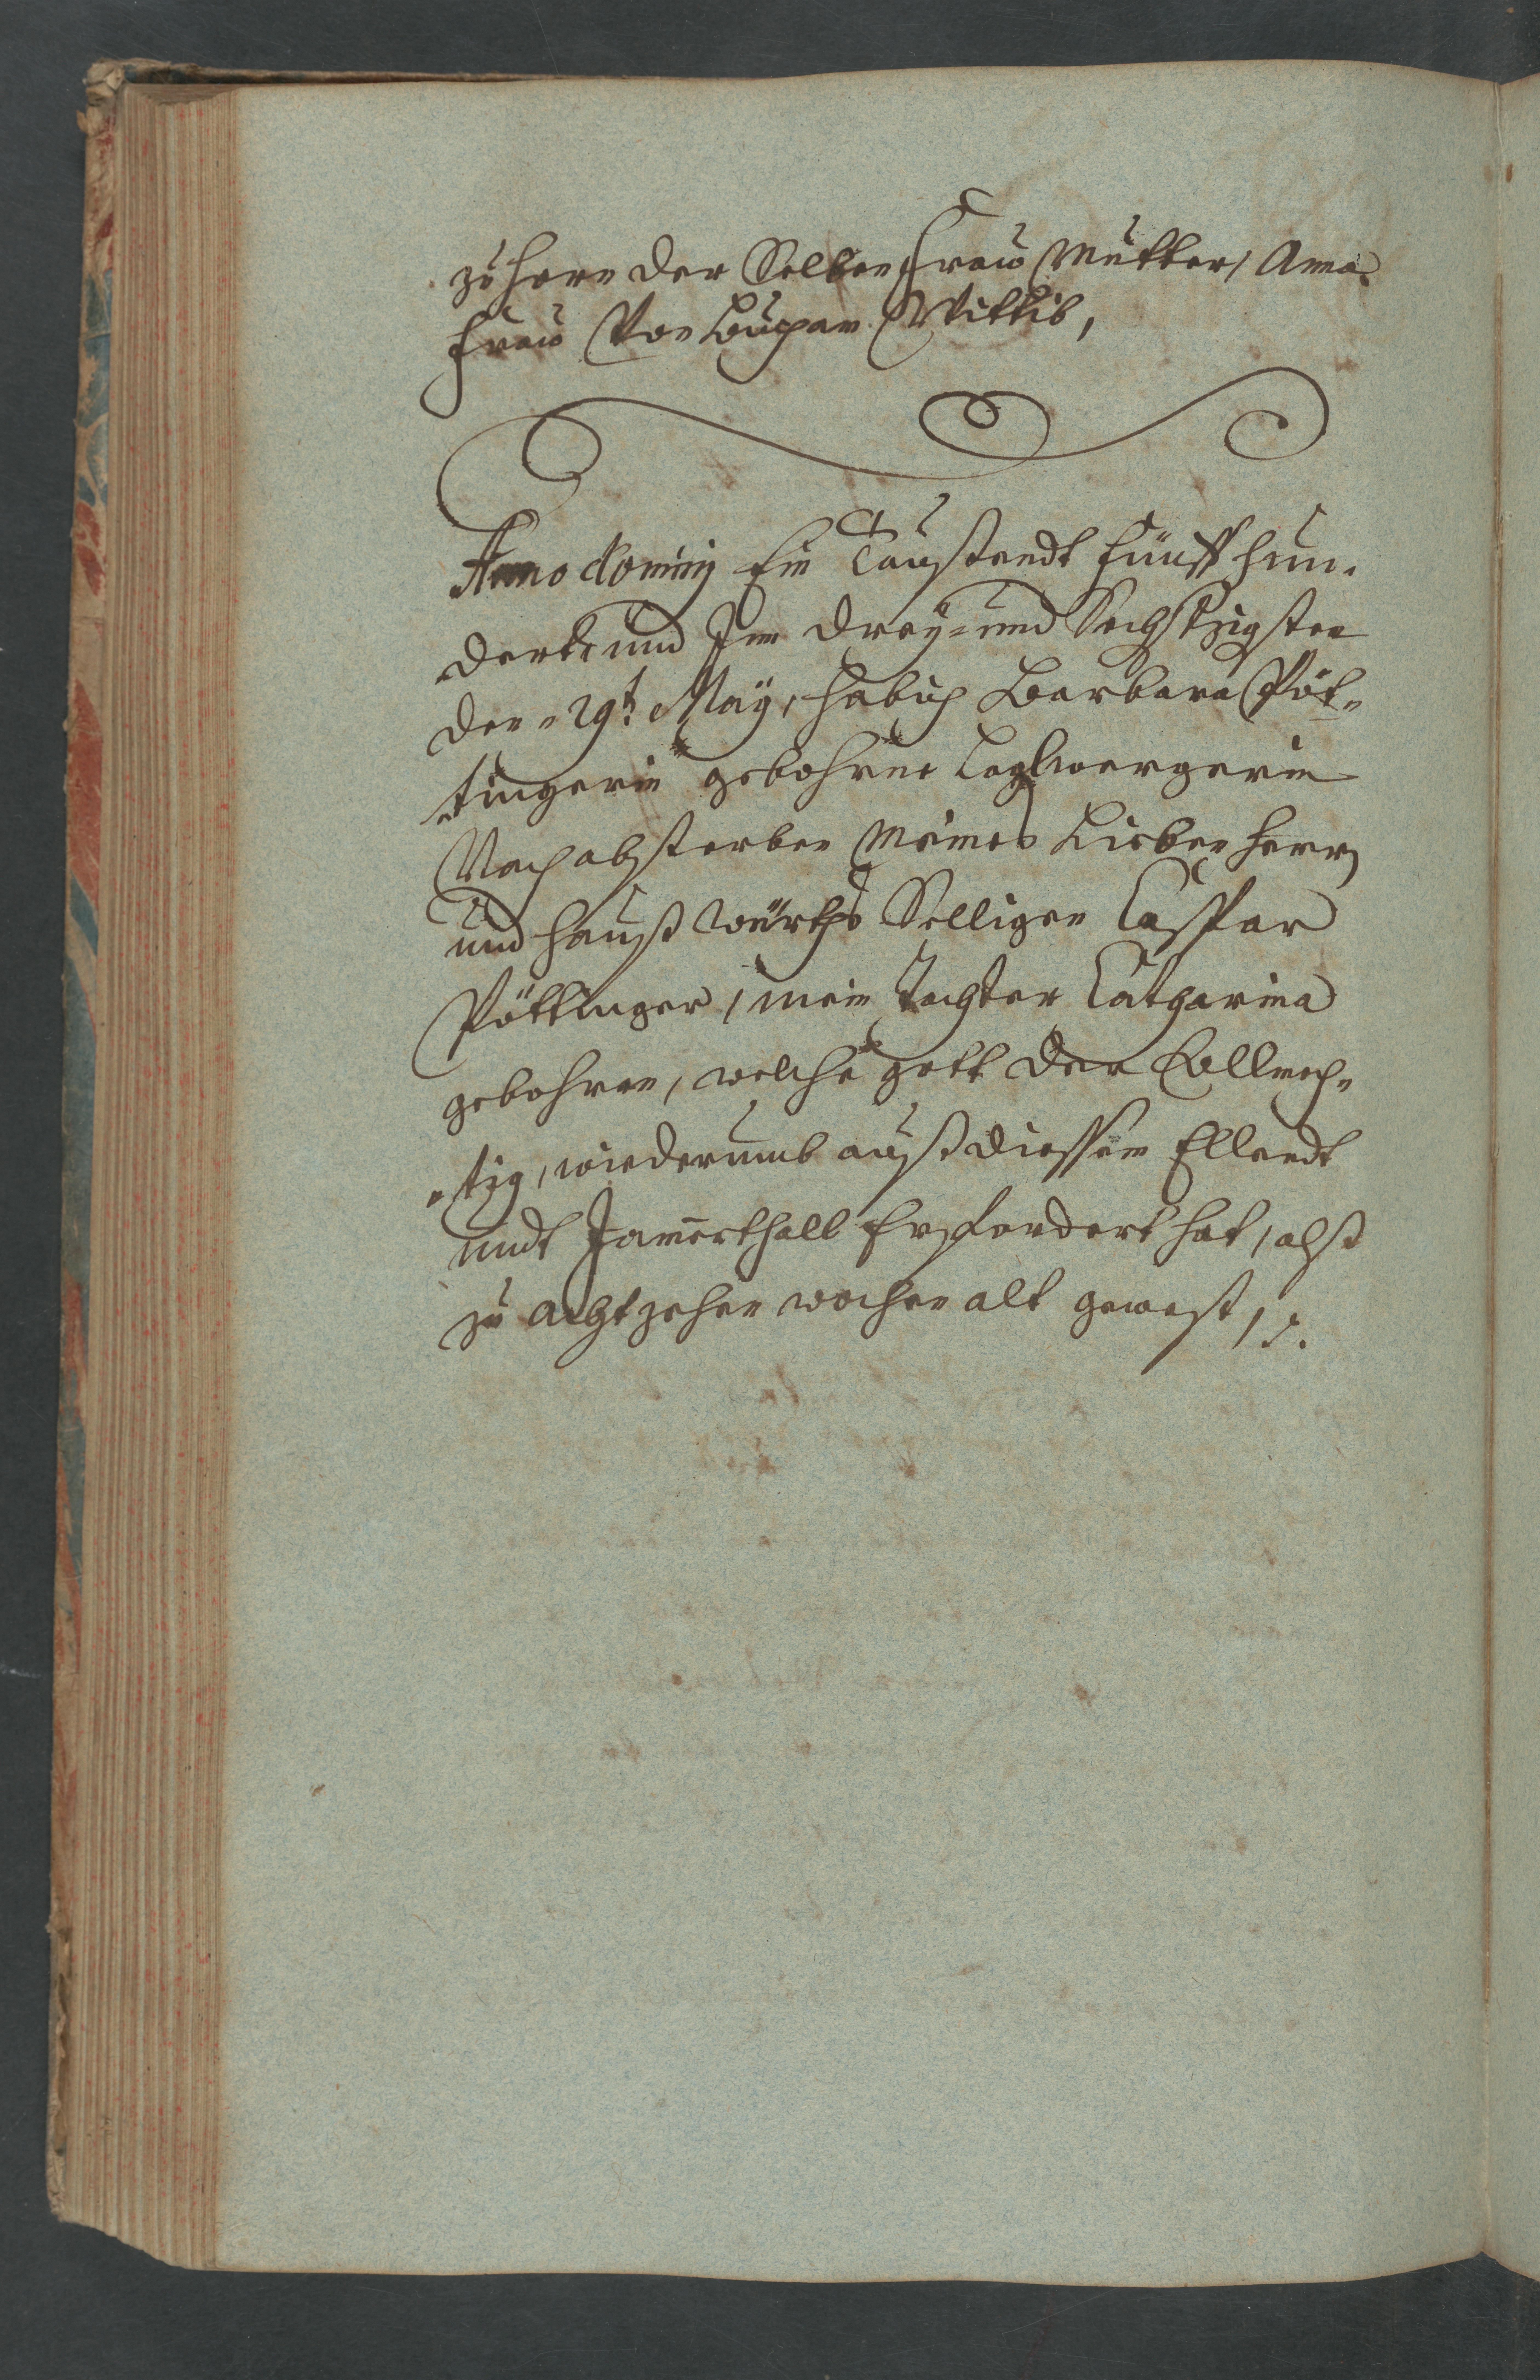 zu Horn der Selben Frau Mutter, Anna
Frau Von Buchan Wittib,
Anno Dominij Ein Taußendt fünff hun„
„dert, und Im dreÿ= und Sechßzigsten
den „29t: Maÿ, hab ich Barbara Pöt„
„tingerin gebohrne
Nach absterben Meines Lieben Herrn
und Hauß würths Selligen Caspar
Pöttinger, mein Tochter Catharina
gebohren, welche gott der Allmech„
„tig, wiederumb auß diessem Ellendt
undt Jam̄erthall Erfordert hat, alß
zu Achtzehen wochen alt gewest,